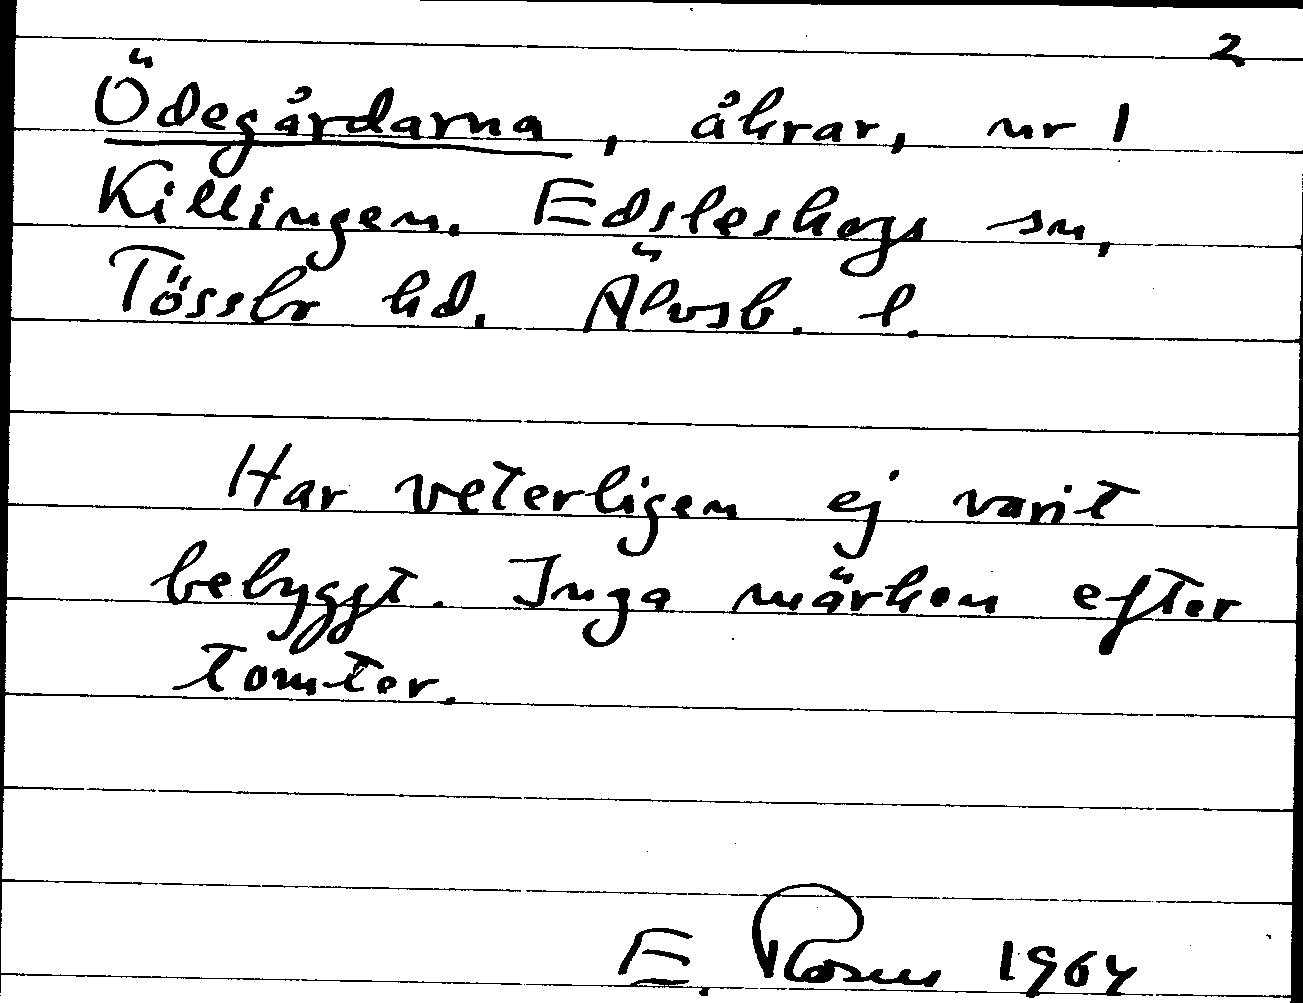 2
Ödegårdarna, åkrar, nr 1
Killingen. Edsleskogs sn,
Tössbo hd. Älvsb. l.
Har veterligen ej varit
bebyggt. Inga märken efter
tomter.
E. Rosen 1964